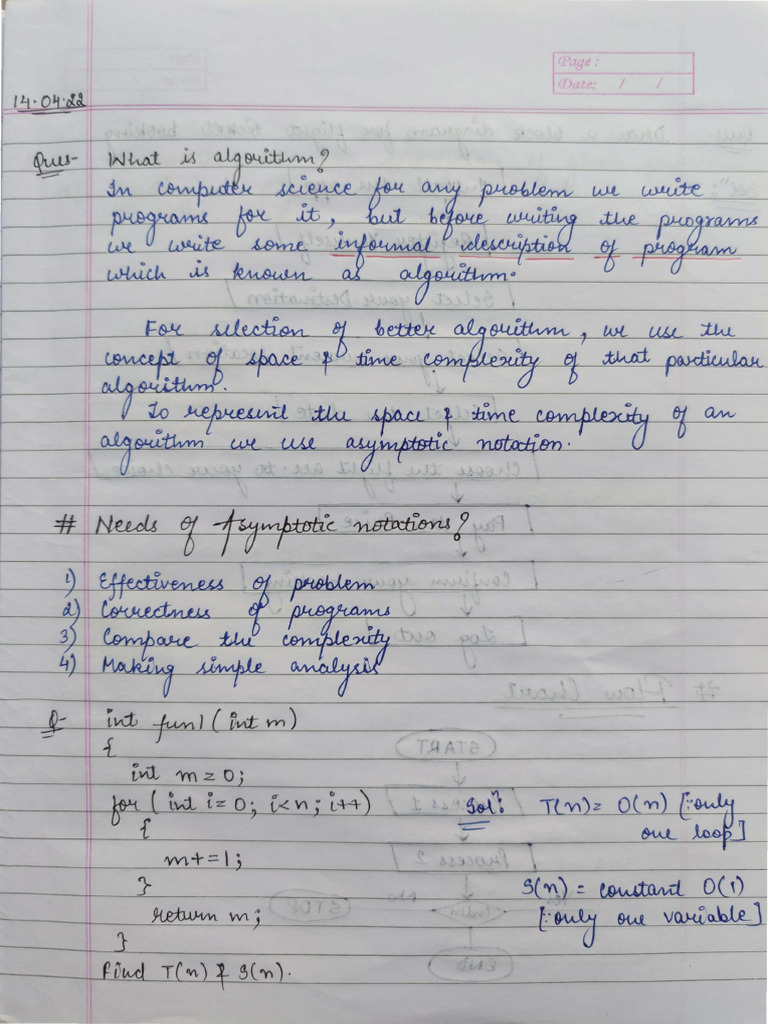 Page :
Date: / /
14.04.22
Ques- What is algorithm?
In computer science for any problem we write
programs for it, but before writing the programs
we write some informal description of program
which is known as algorithm.
For selection of better algorithm, we use the
concept of space & time complexity of that particular
algorithm.
To represent the space & time complexity of an
algorithm we use asymptotic notation.
# Needs of Asymptotic notations?
1) Effectiveness of problem
2) Correctness of programs
3) Compare the complexity
4) Making simple analysis
Q- int fun1 (int m)
{
int m = 0;
for ( int i = 0; i<n; i++) Solⁿ: T(n) = O(n) [∵only
{ one loop]
m+=1;
} S(n) = constant O(1)
return m; [∵only one variable]
}
Find T(n) & S(n).